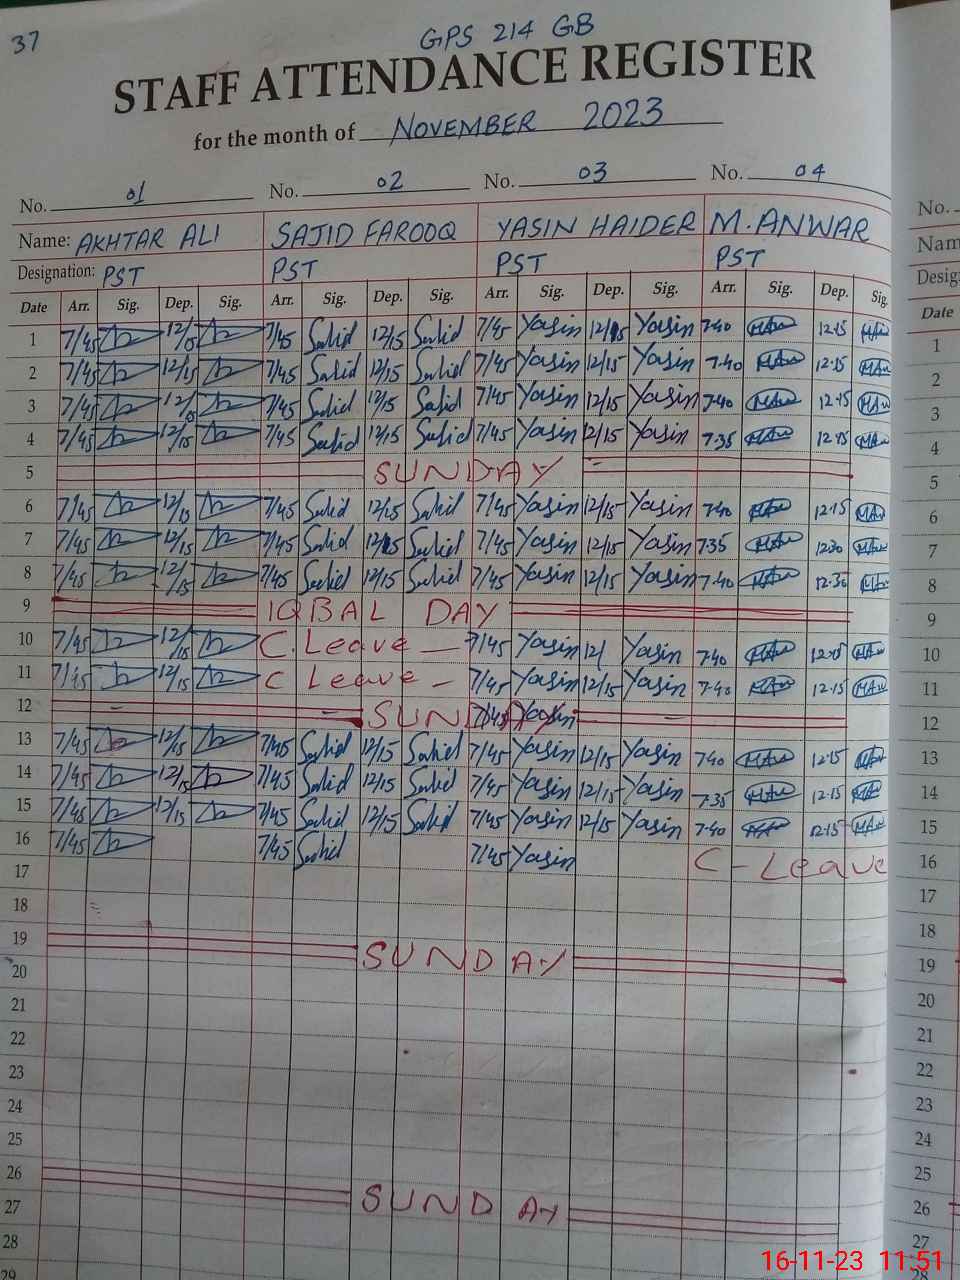 37
GPS 214 GB
STAFF ATTENDANCE REGISTER
for the month of NOVEMBER 2023
No. 01 No. 02 No. 03 No. 04 No.
Name: AKHTAR ALI SAJID FAROOQ YASIN HAIDER M. ANWAR Nam
Designation: PST PST PST PST Desig
Date Arr. Sig. Dep. Sig. Arr. Sig. Dep. Sig. Arr. Sig. Dep. Sig. Arr. Sig. Dep. Sig. Date
1 7/45 12/15 7/45 Sajid 12/15 Sajid 7/45 Yasin 12/15 Yasin 7.40 12.15 1
2 7/45 12/15 7/45 Sajid 12/15 Sajid 7/45 Yasin 12/15 Yasin 7.40 12.15 2
3 7/45 12/15 7/45 Sajid 12/15 Sajid 7/45 Yasin 12/15 Yasin 7.40 12.15 3
4 7/45 12/15 7/45 Sajid 12/15 Sajid 7/45 Yasin 12/15 Yasin 7.35 12.15 4
5 SUNDAY 5
6 7/45 12/15 7/45 Sajid 12/15 Sajid 7/45 Yasin 12/15 Yasin 7.40 12.15 6
7 7/45 12/15 7/45 Sajid 12/15 Sajid 7/45 Yasin 12/15 Yasin 7.35 12.30 7
8 7/45 12/15 7/45 Sajid 12/15 Sajid 7/45 Yasin 12/15 Yasin 7.40 12.30 8
9 IQBAL DAY 9
10 7/45 12/15 C. Leave — 7/45 Yasin 12/ Yasin 7.40 12.15 10
11 7/45 12/15 C Leave — 7/45 Yasin 12/15 Yasin 7.40 12.15 11
12 SUNDAY 7/45 Yasin 12
13 7/45 12/15 7/45 Sajid 12/15 Sajid 7/45 Yasin 12/15 Yasin 7.40 12.15 13
14 7/45 12/15 7/45 Sajid 12/15 Sajid 7/45 Yasin 12/15 Yasin 7.35 12.15 14
15 7/45 12/15 7/45 Sajid 12/15 Sajid 7/45 Yasin 12/15 Yasin 7.40 12.15 15
16 7/45 7/45 Sajid 7/45 Yasin C - Leave 16
17 17
18 18
19 SUNDAY 19
20 20
21 21
22 22
23 23
24 24
25 25
26 SUNDAY 26
27 27
28 28
29
16-11-23 11:51